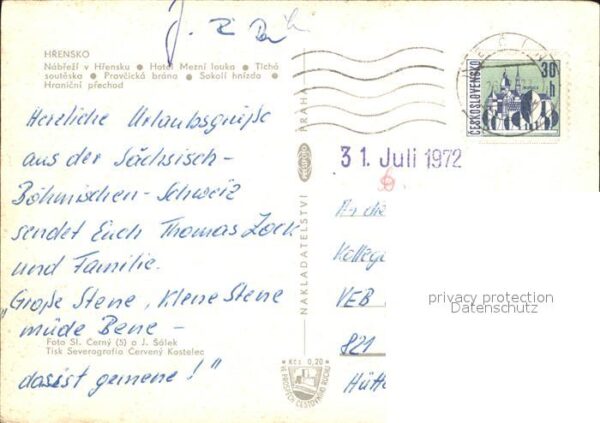 HŘENSKO
Nábřeží v Hřensku ● Hotel Mezní louka ● Tichá
soutěska ● Pravčická brána ● Sokolí hnízdo ●
Hraniční přechod
Herzliche Urlaubsgrüße
aus der Sächsisch-
Böhmischen-Schweiz
sendet Euch Thomas Zock
und Familie.
"Große Stene, Klene Stene
müde Bene -
Foto Sl. Černý (5) a J. Šálek
Tisk Severografia Červený Kostelec
dasist gemene!"
NAKLADATELSTVÍ PRESSFOTO PRAHA
Kčs 0,20
ČESKOSLOVENSKO
30 h
31. Juli 1972
An die
Kolleg
VEB
821
Hütte
privacy protection
Datenschutz